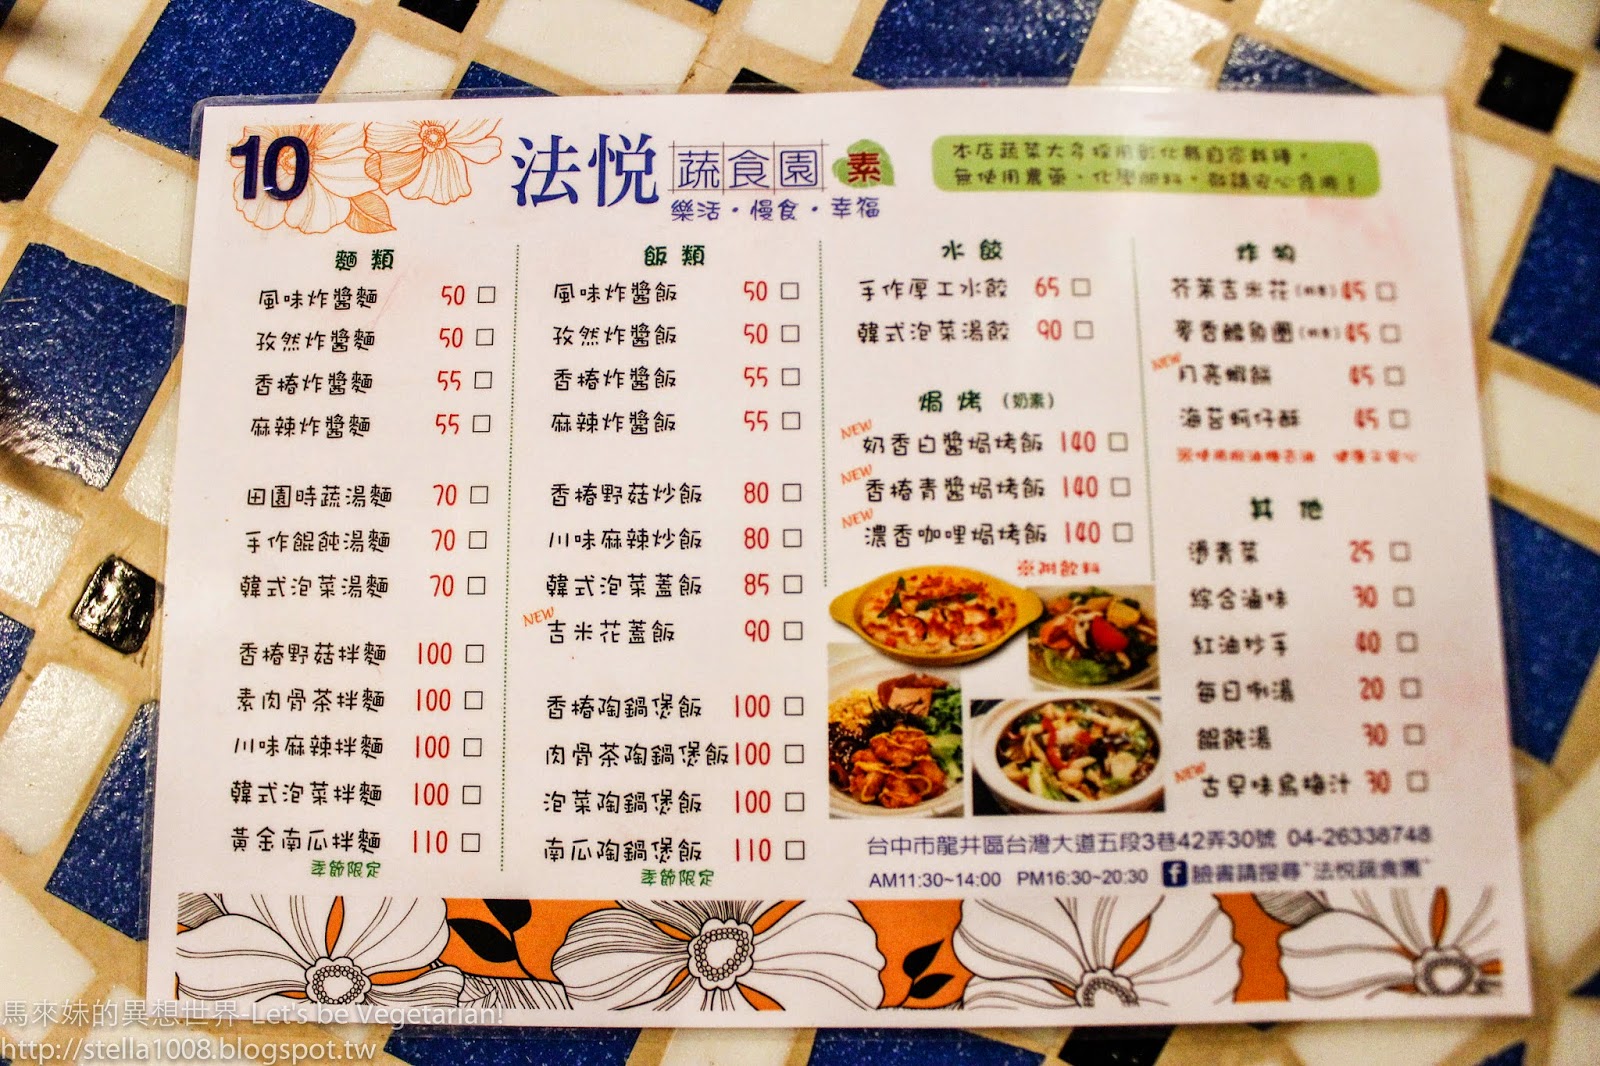 10
法悅 蔬食園 素
樂活・慢食・幸福
本店蔬菜大多採用彰化縣自家栽種，
無使用農藥、化學肥料，敬請安心食用！
麵 類
風味炸醬麵 50 □
孜然炸醬麵 50 □
香椿炸醬麵 55 □
麻辣炸醬麵 55 □
田園時蔬湯麵 70 □
手作餛飩湯麵 70 □
韓式泡菜湯麵 70 □
香椿野菇拌麵 100 □
素肉骨茶拌麵 100 □
川味麻辣拌麵 100 □
韓式泡菜拌麵 100 □
黃金南瓜拌麵 110 □
季節限定
飯 類
風味炸醬飯 50 □
孜然炸醬飯 50 □
香椿炸醬飯 55 □
麻辣炸醬飯 55 □
香椿野菇炒飯 80 □
川味麻辣炒飯 80 □
韓式泡菜蓋飯 85 □
NEW 吉米花蓋飯 90 □
香椿陶鍋煲飯 100 □
肉骨茶陶鍋煲飯 100 □
泡菜陶鍋煲飯 100 □
南瓜陶鍋煲飯 110 □
季節限定
水 餃
手作厚工水餃 65 □
韓式泡菜湯餃 90 □
焗 烤 (奶素)
NEW 奶香白醬焗烤飯 140 □
NEW 香椿青醬焗烤飯 140 □
NEW 濃香咖哩焗烤飯 140 □
※附飲料
炸 物
芥茉吉米花 45 □
麥香鱈魚圈 45 □
NEW 月亮蝦餅 45 □
海苔蚵仔酥 45 □
其 他
燙青菜 25 □
綜合滷味 30 □
紅油炒手 40 □
每日例湯 20 □
餛飩湯 30 □
NEW 古早味烏梅汁 30 □
台中市龍井區台灣大道五段3巷42弄30號 04-26338748
AM11:30~14:00 PM16:30~20:30 f 臉書請搜尋"法悅蔬食園"
馬來妹的異想世界-Let's be Vegetarian!
http://stella1008.blogspot.tw